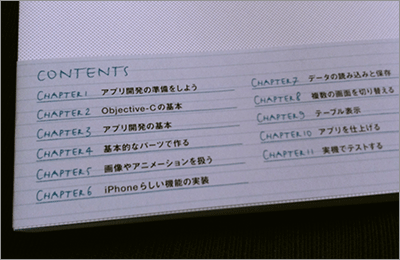 CONTENTS
CHAPTER 1 アプリ開発の準備をしよう
CHAPTER 2 Objective-Cの基本
CHAPTER 3 アプリ開発の基本
CHAPTER 4 基本的なパーツで作る
CHAPTER 5 画像やアニメーションを扱う
CHAPTER 6 iPhoneらしい機能の実装
CHAPTER 7 データの読み込みと保存
CHAPTER 8 複数の画面を切り替える
CHAPTER 9 テーブル表示
CHAPTER 10 アプリを仕上げる
CHAPTER 11 実機でテストする